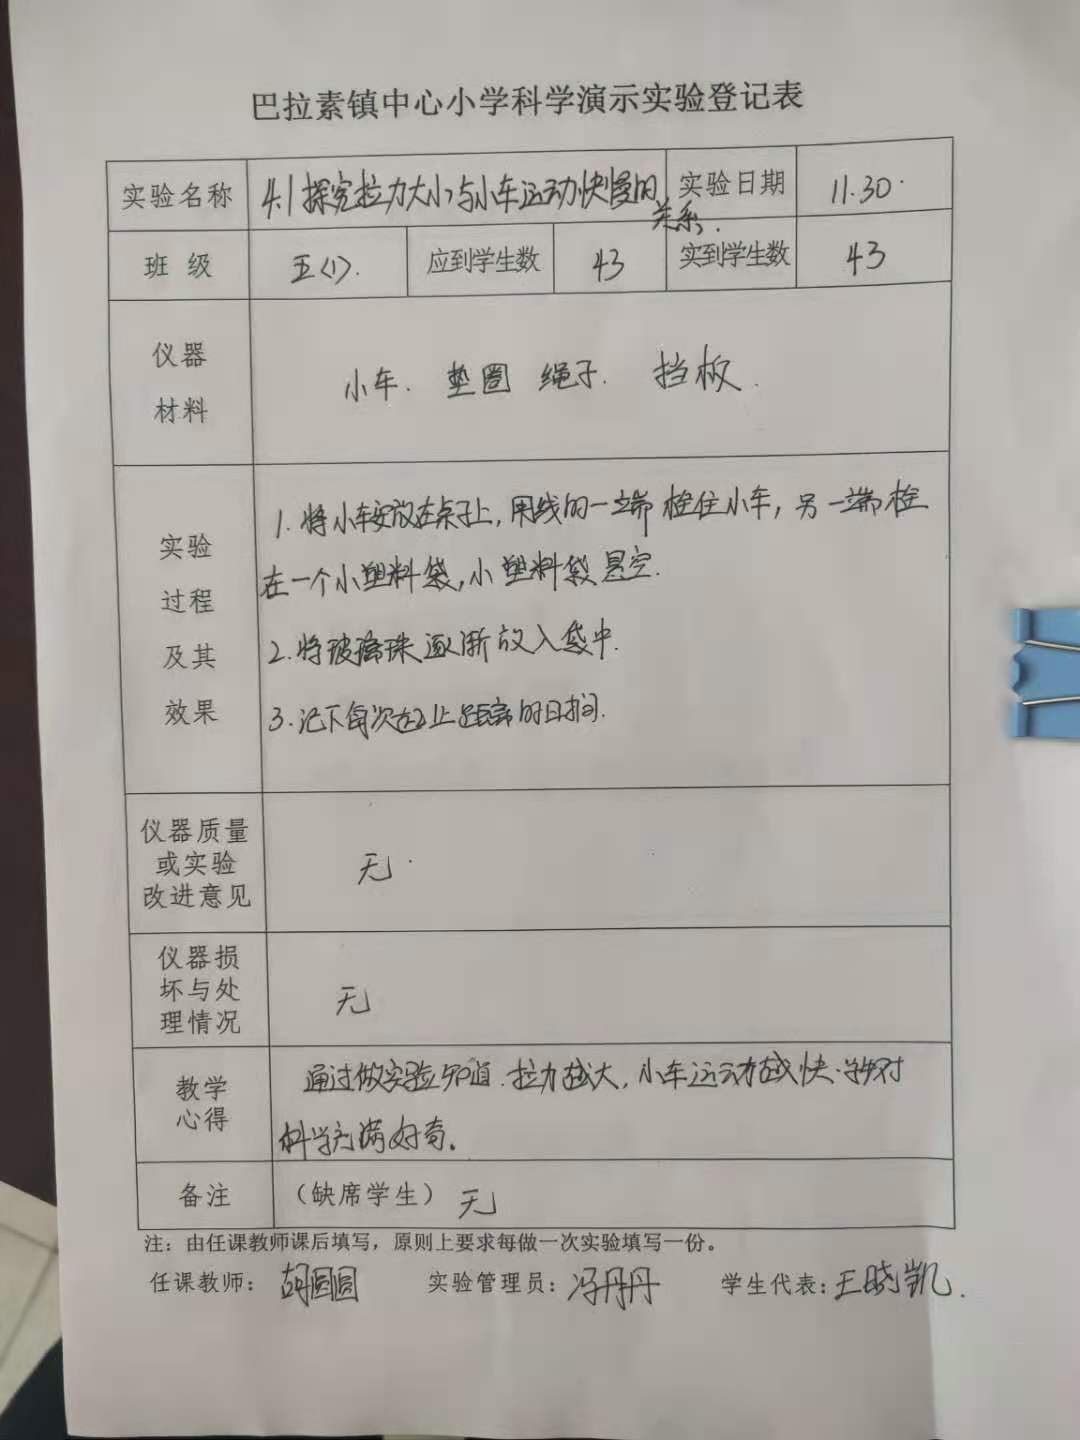 巴拉素镇中心小学科学演示实验登记表
实验名称 4.1探究拉力大小与小车运动快慢的关系. 实验日期 11.30.
班 级 五<1>. 应到学生数 43 实到学生数 43
仪器
材料
小车. 垫圈 绳子. 挡板.
实验
过程
及其
效果
1.将小车安放在桌子上,用线的一端栓住小车,另一端栓
在一个小塑料袋,小塑料袋悬空.
2.将玻璃珠逐渐放入袋中.
3.记下每次 距离的时间.
仪器质量
或实验
改进意见
无.
仪器损
坏与处
理情况
无
教学
心得
通过做实验知道.拉力越大,小车运动越快. 对
科学充满好奇。
备注 （缺席学生） 无
注：由任课教师课后填写，原则上要求每做一次实验填写一份。
任课教师：胡圆圆 实验管理员：冯丹丹 学生代表：王晓凯.